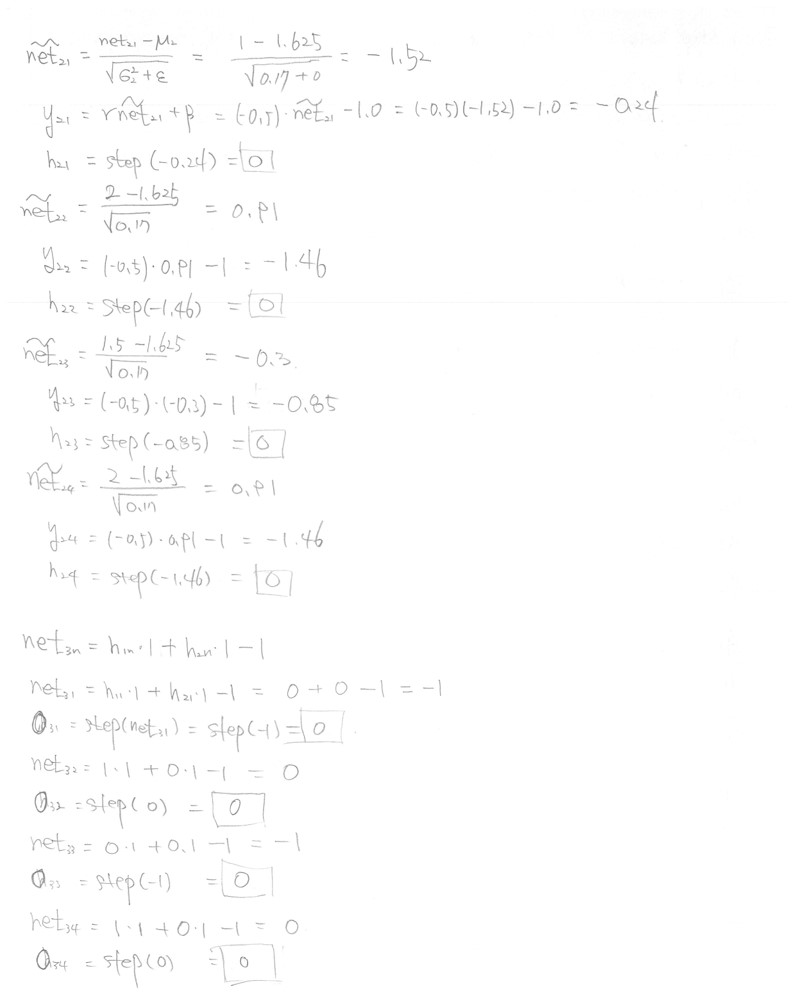 ñet₂₁ = (net₂₁ − μ₂)/√(σ₂² + ε) = (1 − 1.625)/√(0.17 + 0) = −1.52
y₂₁ = r ñet₂₁ + β = (−0.5)·ñet₂₁ − 1.0 = (−0.5)(−1.52) − 1.0 = −0.24
h₂₁ = step(−0.24) = 0
ñet₂₂ = (2 − 1.625)/√0.17 = 0.91
y₂₂ = (−0.5)·0.91 − 1 = −1.46
h₂₂ = step(−1.46) = 0
ñet₂₃ = (1.5 − 1.625)/√0.17 = −0.3
y₂₃ = (−0.5)·(−0.3) − 1 = −0.85
h₂₃ = step(−0.85) = 0
ñet₂₄ = (2 − 1.625)/√0.17 = 0.91
y₂₄ = (−0.5)·0.91 − 1 = −1.46
h₂₄ = step(−1.46) = 0
net₃ₙ = h₁ₙ·1 + h₂ₙ·1 − 1
net₃₁ = h₁₁·1 + h₂₁·1 − 1 = 0 + 0 − 1 = −1
O₃₁ = step(net₃₁) = step(−1) = 0
net₃₂ = 1·1 + 0·1 − 1 = 0
O₃₂ = step(0) = 0
net₃₃ = 0·1 + 0·1 − 1 = −1
O₃₃ = step(−1) = 0
net₃₄ = 1·1 + 0·1 − 1 = 0
O₃₄ = step(0) = 0